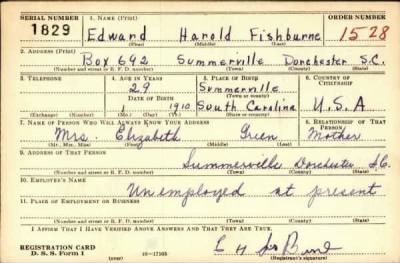 SERIAL NUMBER 1. NAME (Print) ORDER NUMBER
1829 Edward Harold Fishburne 1528
(First) (Middle) (Last)
2. ADDRESS (Print)
Box 692 Summerville Dorchester S.C.
(Number and street or R. F. D. number) (Town) (County) (State)
3. TELEPHONE 4. AGE IN YEARS 5. PLACE OF BIRTH 6. COUNTRY OF CITIZENSHIP
29 Summerville
DATE OF BIRTH (Town or county)
1 1910 South Carolina U.S.A
(Exchange) (Number) (Mo.) (Day) (Yr.) (State or country)
7. NAME OF PERSON WHO WILL ALWAYS KNOW YOUR ADDRESS 8. RELATIONSHIP OF THAT PERSON
Mrs. Elizabeth Green Mother
(Mr., Mrs., Miss) (First) (Middle) (Last)
9. ADDRESS OF THAT PERSON
Summerville Dorchester S.C.
(Number and street or R. F. D. number) (Town) (County) (State)
10. EMPLOYER'S NAME
Unemployed at present
11. PLACE OF EMPLOYMENT OR BUSINESS
(Number and street or R. F. D. number) (Town) (County) (State)
I AFFIRM THAT I HAVE VERIFIED ABOVE ANSWERS AND THAT THEY ARE TRUE.
REGISTRATION CARD
D. S. S. Form 1 16-17105
(Registrant's signature)